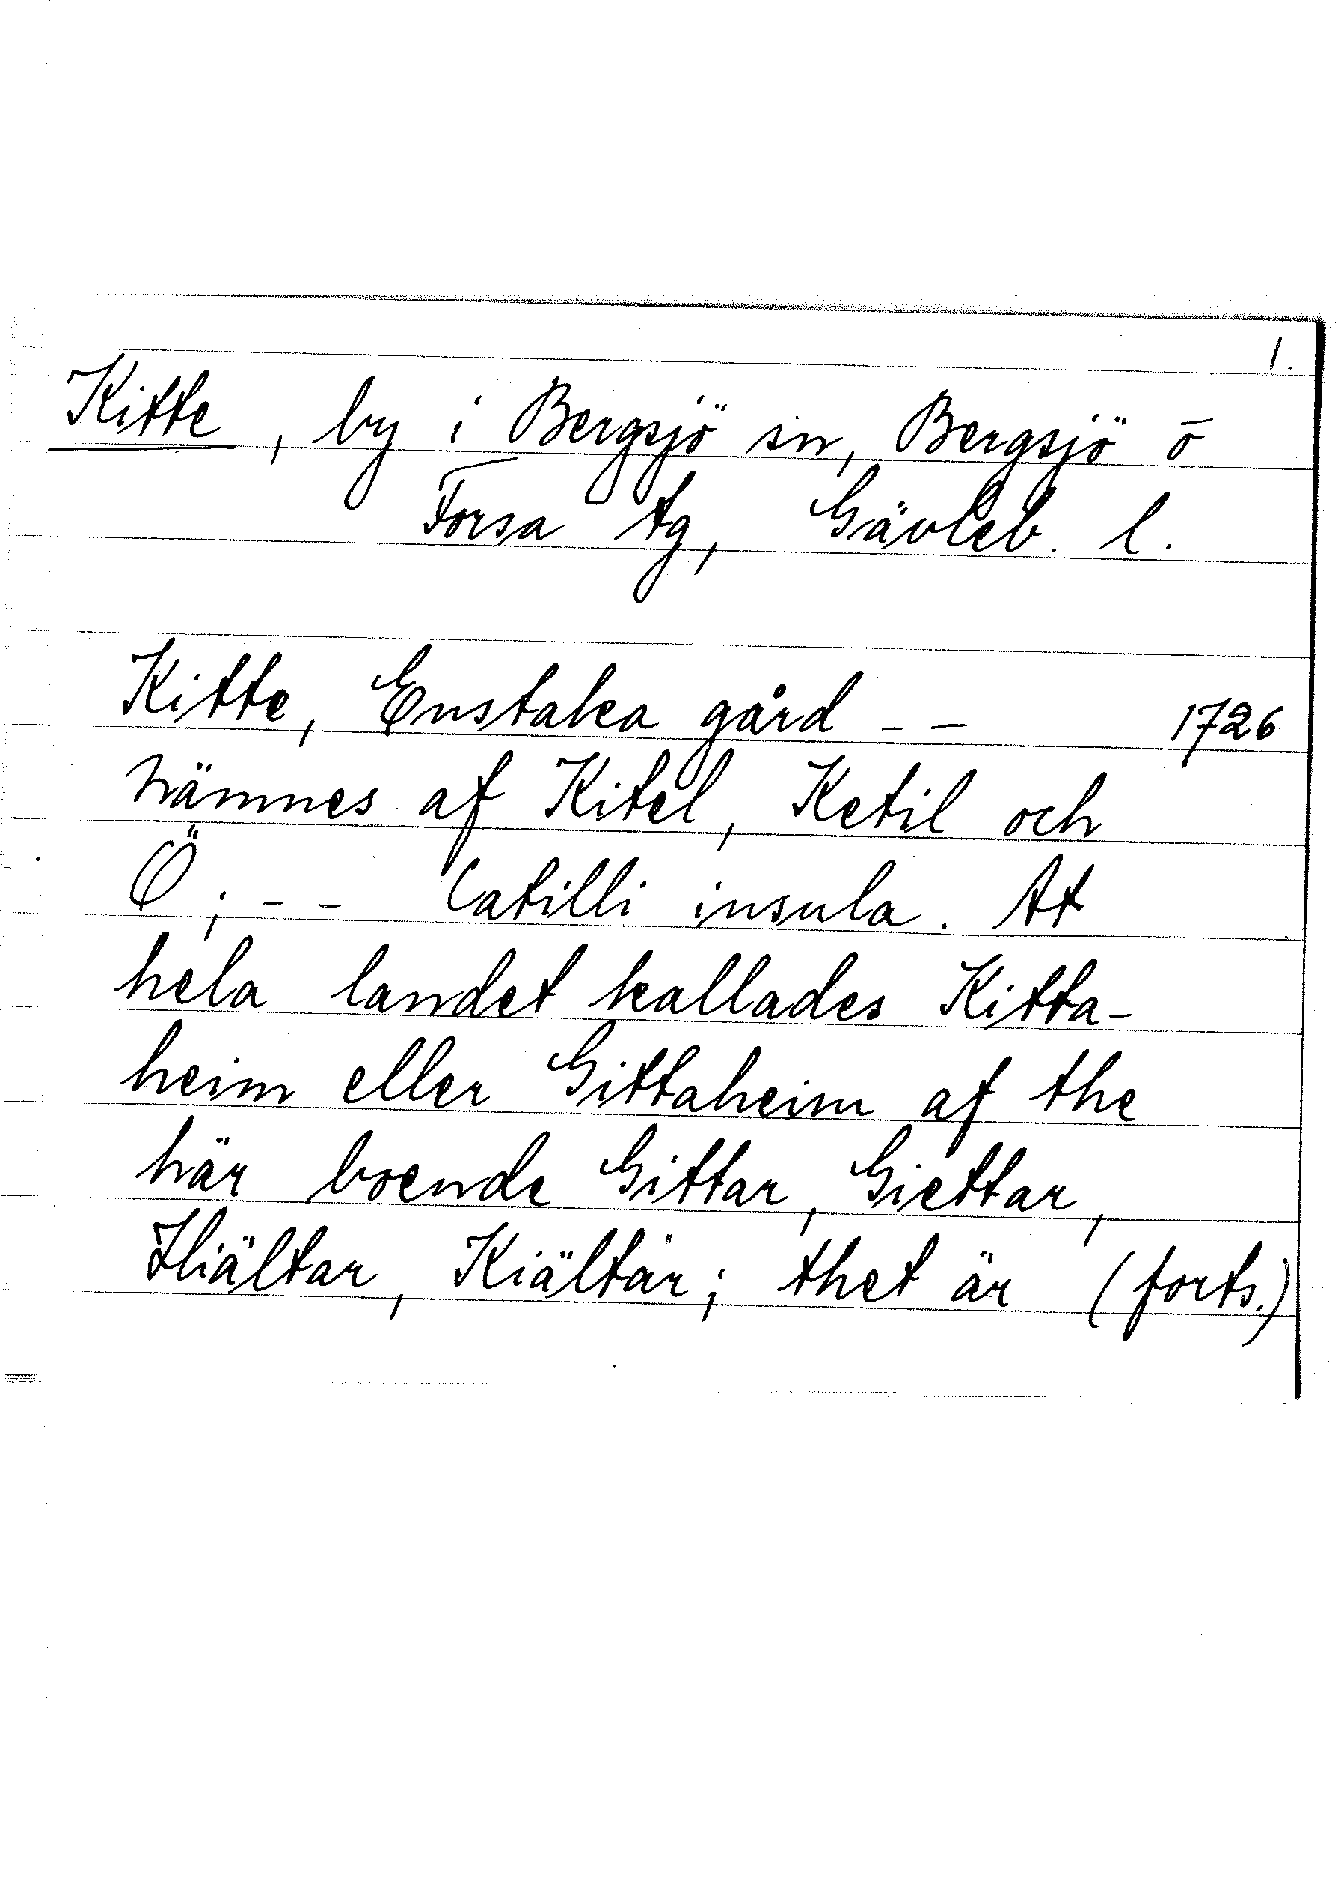 1.
Kitte, by i Bergsjö sn, Bergsjö o
Forsa tg, Gävleb. l.
Kitte, Enstaka gård -- 1726
nämnes af Kitel, Ketil och
Ö; -- Catilli insula. At
hela landet kallades Kitta-
heim eller Gittaheim af the
här boende Gittar, Giettar,
Hiältar, Kiältär; thet är (forts.)